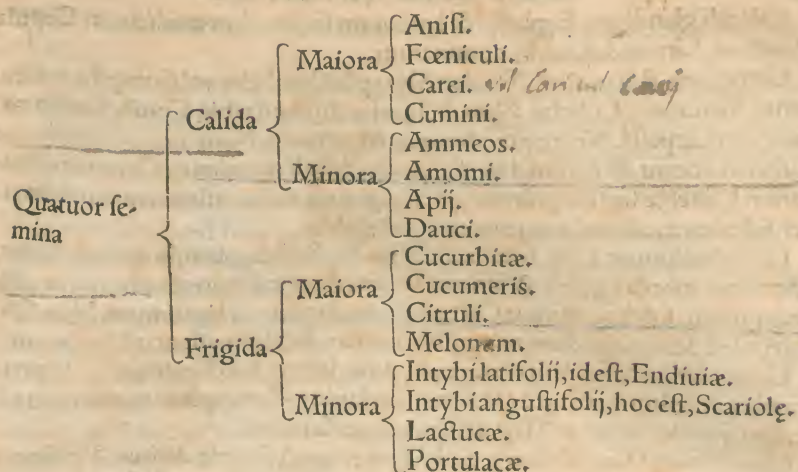 Quatuor ſe-
mina
Calida
Maiora
Aniſi.
Fœniculi.
Carei. vel Cari vel
Cumini.
Minora
Ammeos.
Amomi.
Apij.
Dauci.
Frigida
Maiora
Cucurbitæ.
Cucumeris.
Citruli.
Melonum.
Minora
Intybi latifolij, id eſt, Endiuiæ.
Intybi anguſtifolij, hoc eſt, Scariolę.
Lactucæ.
Portulacæ.